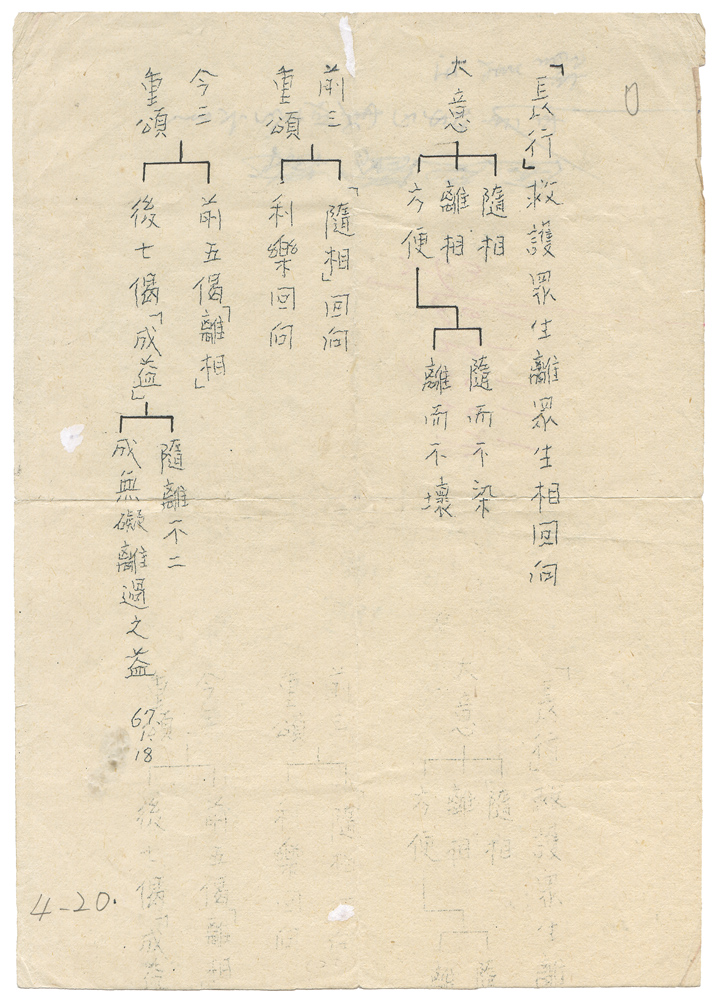 「長行」救護眾生離眾生相回向
大意
隨相
離相
方便
隨而不染
離而不壞
前三
重頌
「隨相」回向
利樂回向
今三
重頌
前五偈「離相」
後七偈「成益」
隨離不二
成無礙離過之益
67.1.18
4-20.
0